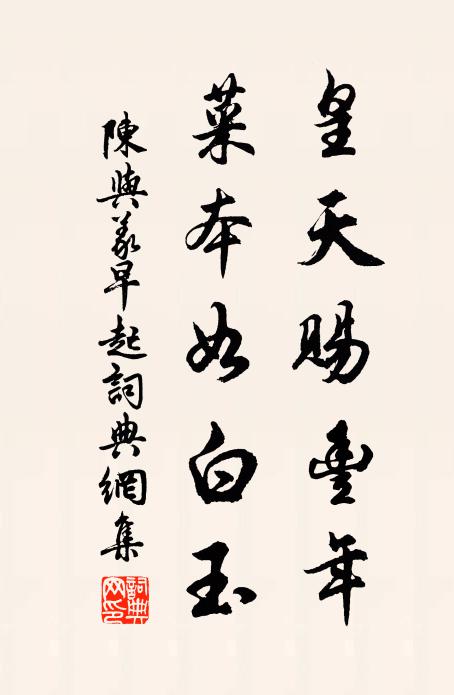 皇天賜豐年
菜本如白玉
陳與義早起詞典網集
詞典网印